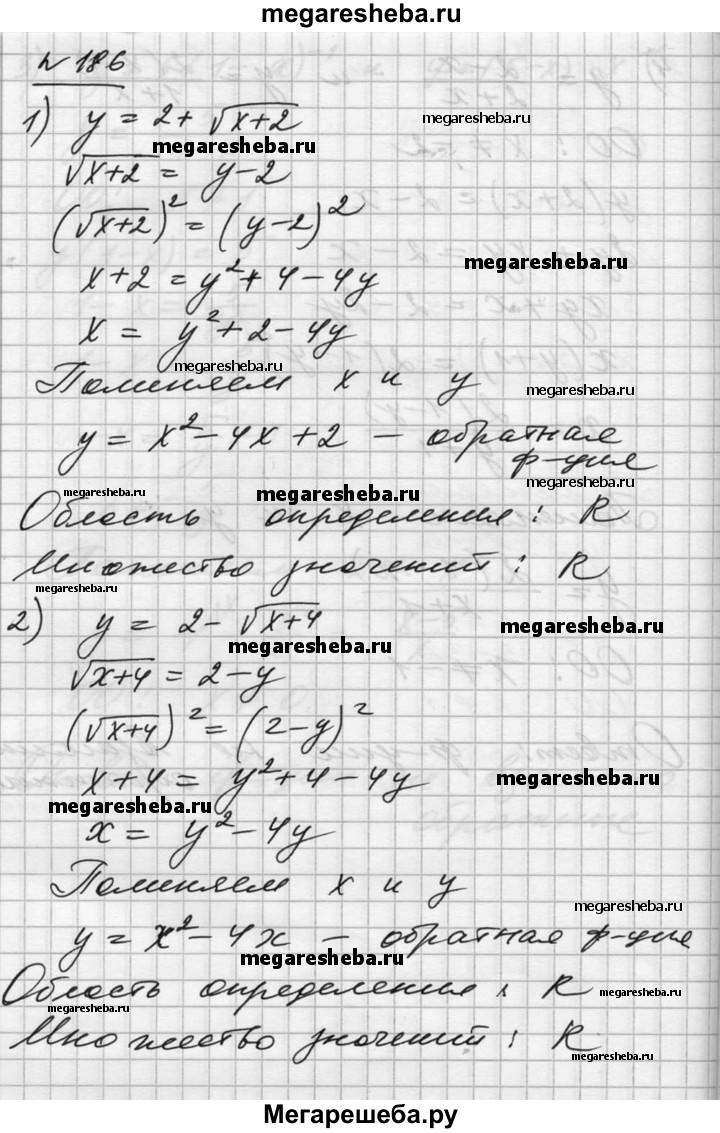 megaresheba.ru
№ 186
1) y = 2 + √(x+2)
megaresheba.ru
√(x+2) = y - 2
(√(x+2))² = (y-2)²
megaresheba.ru
x + 2 = y² + 4 - 4y
x = y² + 2 - 4y
megaresheba.ru
Поменяем x и y
megaresheba.ru
y = x² - 4x + 2 — обратная
ф-ция
megaresheba.ru
megaresheba.ru
megaresheba.ru
Область определения: R
Множество значений: R
megaresheba.ru
2) y = 2 - √(x+4)
megaresheba.ru
megaresheba.ru
√(x+4) = 2 - y
(√(x+4))² = (2-y)²
x + 4 = y² + 4 - 4y
megaresheba.ru
megaresheba.ru
x = y² - 4y
Поменяем x и y
megaresheba.ru
y = x² - 4x — обратная ф-ция
megaresheba.ru
Область определения: R
megaresheba.ru
Множество значений: R
megaresheba.ru
Мегарешеба.ру